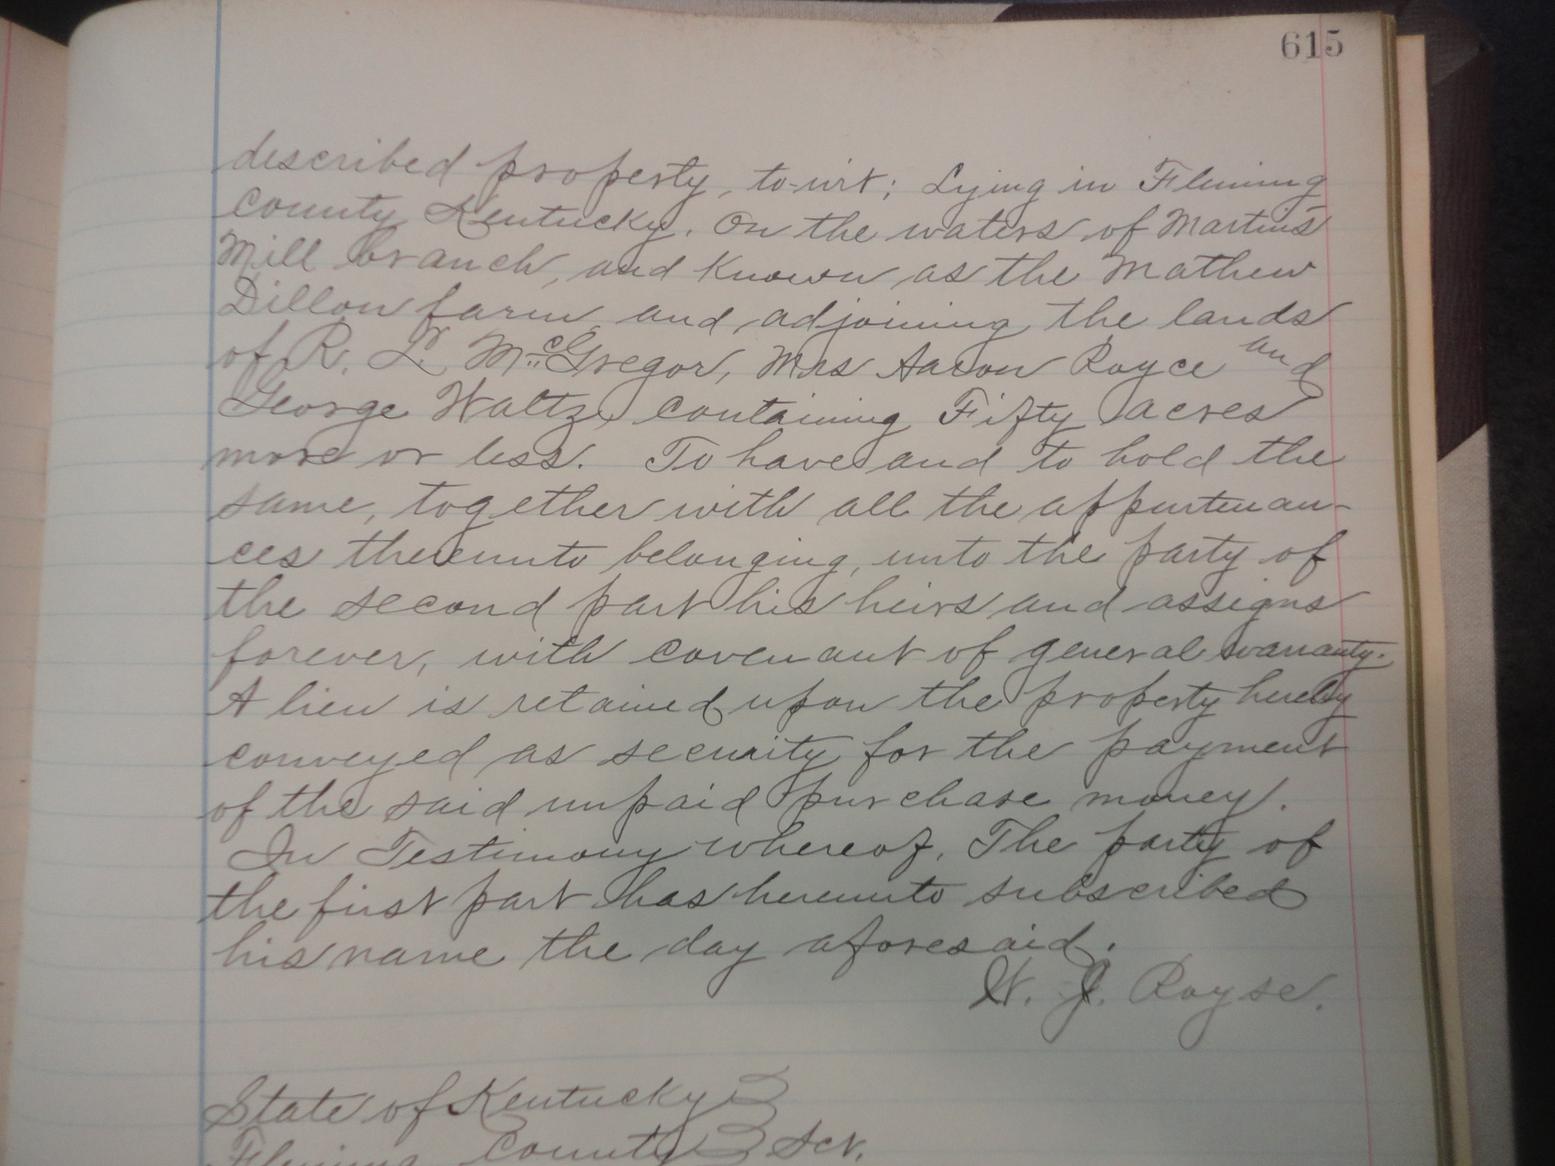 615
described property, to-wit; Lying in Fleming
County Kentucky. On the waters of Martins
Mill branch, and known as the Mathew
Dillon farm and adjoining the lands
of R. L. McGregor, Mrs Aaron Royce and
George Waltz, containing Fifty acres
more or less. To have and to hold the
same, together with all the appurtenan-
ces thereunto belonging, unto the party of
the second part his heirs and assigns
forever, with covenant of general warranty.
A lien is retained upon the property hereby
conveyed as security for the payment
of the said unpaid purchase money.
In Testimony whereof, The party of
the first part has hereunto subscribed
his name the day aforesaid.
W. J. Royse.
State of Kentucky }
Fleming County } Sct.